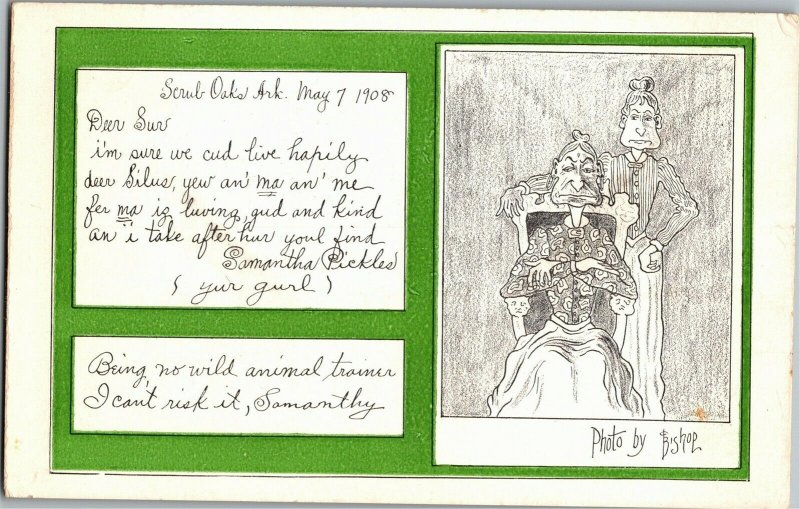 Scrub Oaks Ark. May 7 1908
Deer Sur
i'm sure we cud live hapily
deer Silus, yew an' ma an' me
fer ma iz luving, gud and kind
an' i take after hur youl find
Samantha Pickles
( yur gurl )
Being no wild animal trainer
I can't risk it, Samanthy
Photo by Bishop